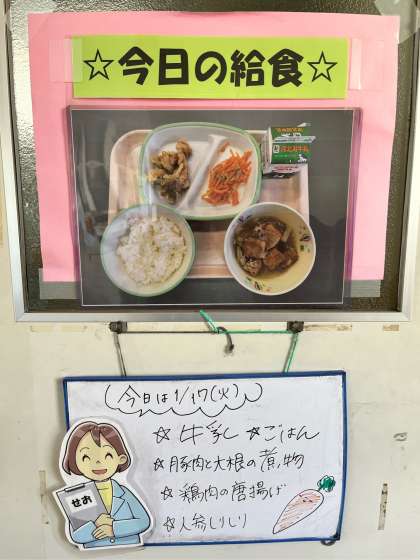 ☆今日の給食☆
今日は1/17(火)
☆牛乳 ☆ごはん
☆豚肉と大根の煮物
☆鶏肉の唐揚げ
☆人参しりしり
せお